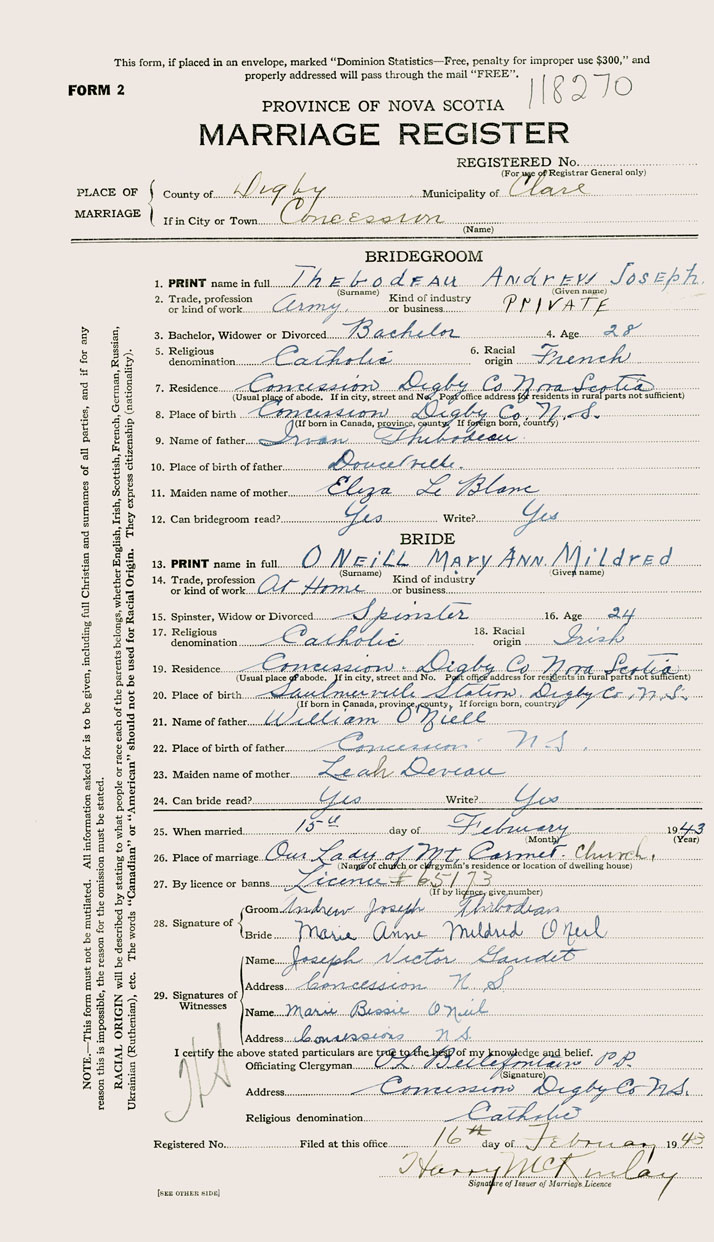 This form, if placed in an envelope, marked "Dominion Statistics—Free, penalty for improper use $300," and
properly addressed will pass through the mail "FREE".
FORM 2
118270
PROVINCE OF NOVA SCOTIA
MARRIAGE REGISTER
REGISTERED No.
(For use of Registrar General only)
PLACE OF MARRIAGE
County of Digby Municipality of Clare
If in City or Town Concession
(Name)
BRIDEGROOM
1. PRINT name in full THEBODEAU ANDREW JOSEPH.
(Surname) (Given name)
2. Trade, profession or kind of work Army. Kind of industry or business PRIVATE
3. Bachelor, Widower or Divorced Bachelor 4. Age 28
5. Religious denomination Catholic 6. Racial origin French
7. Residence Concession Digby Co Nova Scotia
(Usual place of abode. If in city, street and No. Post office address for residents in rural parts not sufficient)
8. Place of birth Concession Digby Co. N.S.
(If born in Canada, province, county, If foreign born, country)
9. Name of father Irvan Thibodeau
10. Place of birth of father Doucetville.
11. Maiden name of mother Eliza Le Blanc
12. Can bridegroom read? Yes Write? Yes
BRIDE
13. PRINT name in full O NEILL MARY ANN. Mildred
(Surname) (Given name)
14. Trade, profession or kind of work At Home Kind of industry or business
15. Spinster, Widow or Divorced Spinster 16. Age 24
17. Religious denomination Catholic 18. Racial origin Irish
19. Residence Concession. Digby Co Nova Scotia
(Usual place of abode. If in city, street and No. Post office address for residents in rural parts not sufficient)
20. Place of birth Saulnierville Station. Digby Co. N.S.
(If born in Canada, province, county, If foreign born, country)
21. Name of father William O'Niell
22. Place of birth of father Concession N.S.
23. Maiden name of mother Leah Deveau
24. Can bride read? Yes Write? Yes
25. When married 15th day of February 1943
(Month) (Year)
26. Place of marriage Our Lady of Mt. Carmel. Church.
(Name of church or clergyman's residence or location of dwelling house)
27. By licence or banns Licence # 65173
(If by licence, give number)
28. Signature of
Groom Andrew Joseph Thibodeau
Bride Marie Anne Mildred O'Neil
29. Signatures of Witnesses
Name Joseph Victor Gaudet
Address Concession N.S
Name Marie Bessie O'Neil
Address Concessions N.S.
I certify the above stated particulars are true to the best of my knowledge and belief.
Officiating Clergyman Bellefontain P.P.
(Signature)
Address Concession Digby Co N.S.
Religious denomination Catholic
Registered No. Filed at this office 16th day of February 1943
Harry McKinlay
Signature of Issuer of Marriage Licence
[SEE OTHER SIDE]
NOTE.—This form must not be mutilated. All information asked for is to be given, including full Christian and surnames of all parties, and if for any
reason this is impossible, the reason for the omission must be stated.
RACIAL ORIGIN will be described by stating to what people or race each of the parents belongs, whether English, Irish, Scottish, French, German, Russian,
Ukrainian (Ruthenian), etc. The words "Canadian" or "American" should not be used for Racial Origin. They express citizenship (nationality).